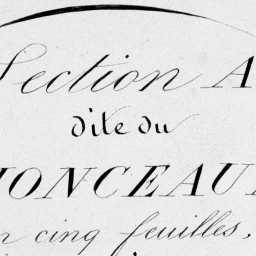 Section A
dite du
MONCEAU
en cinq feuilles,